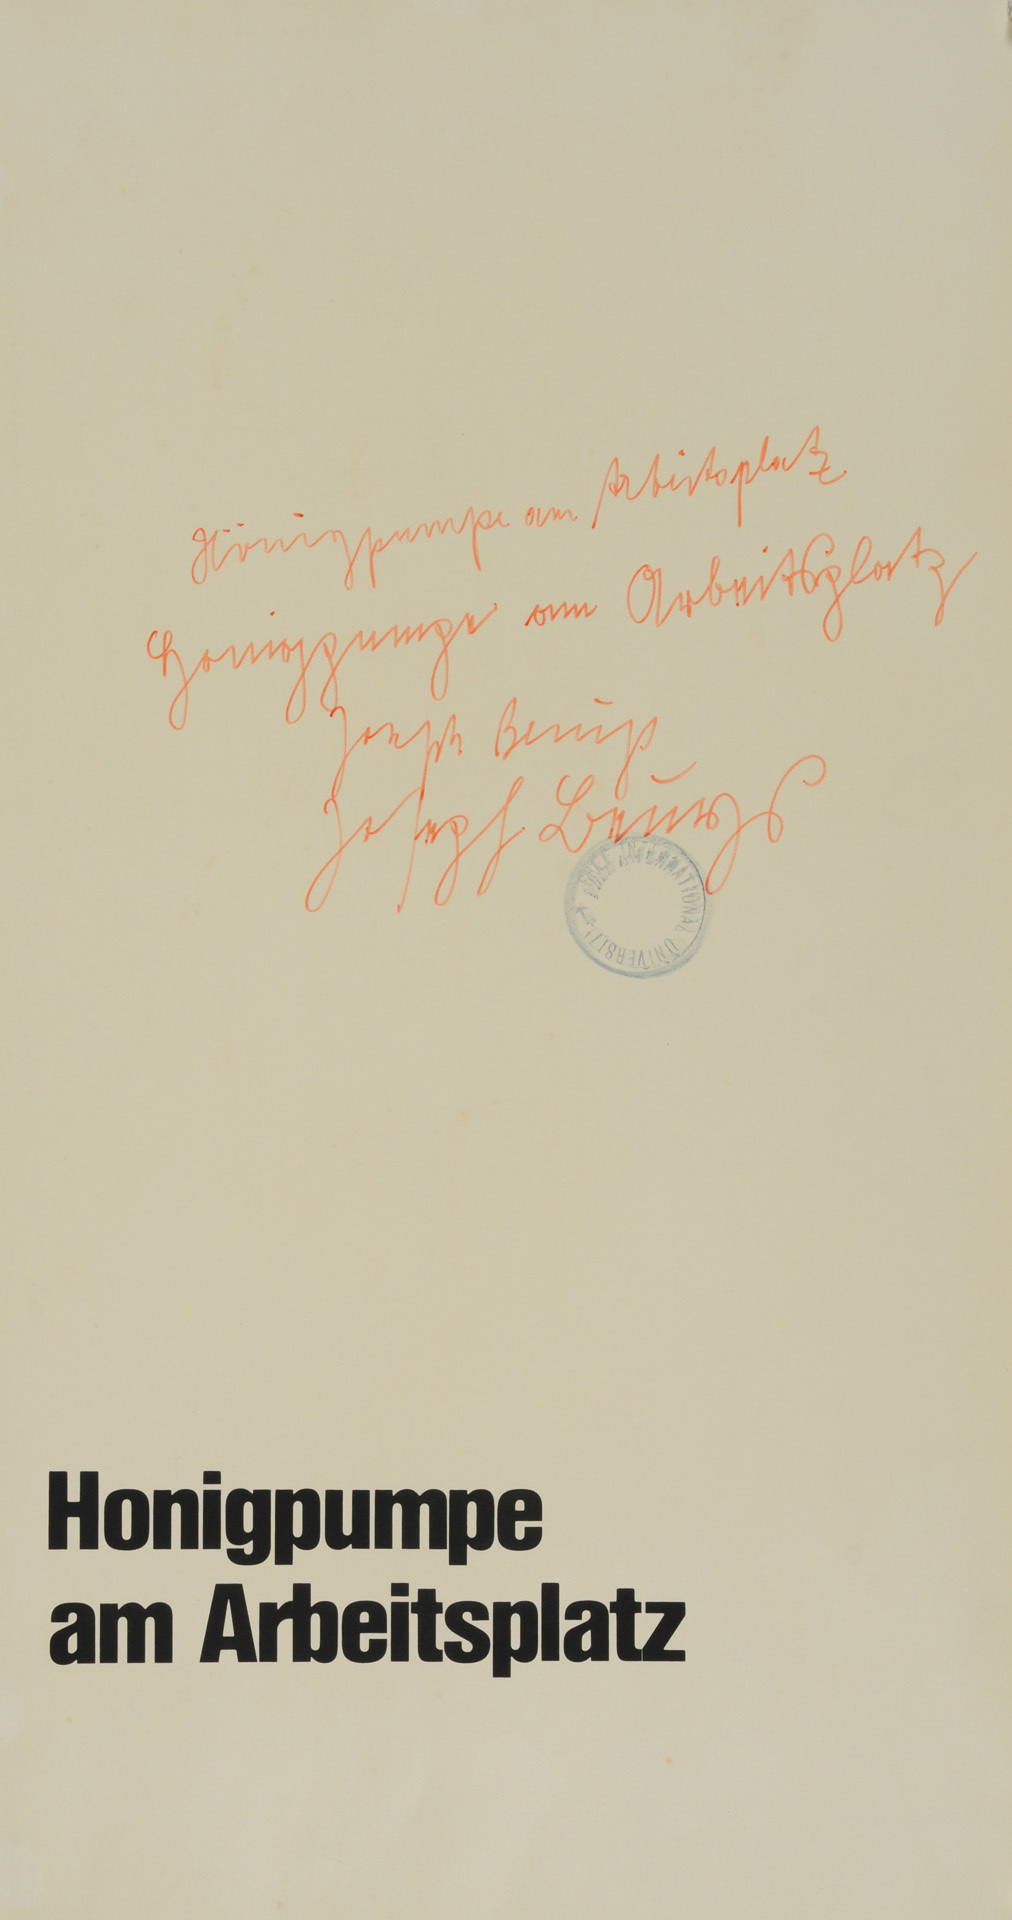 Honigpumpe am Arbeitsplatz
Honigpumpe am Arbeitsplatz
Joseph Beuys
Joseph Beuys
FREE INTERNATIONAL UNIVERSITY
Honigpumpe
am Arbeitsplatz